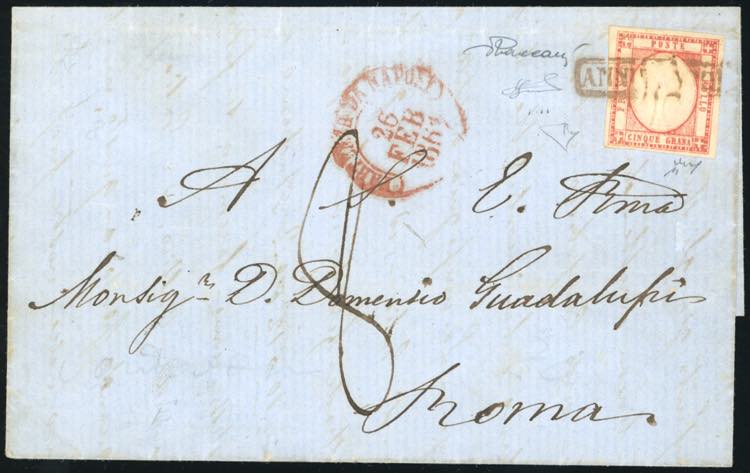 POSTE
BOLLO
CINQUE GRANA
ANN
DI NAPOLI
26
FEB
1861
A S. E. Rma
Monsigr. D. Domenico Guadalupi
8
Roma